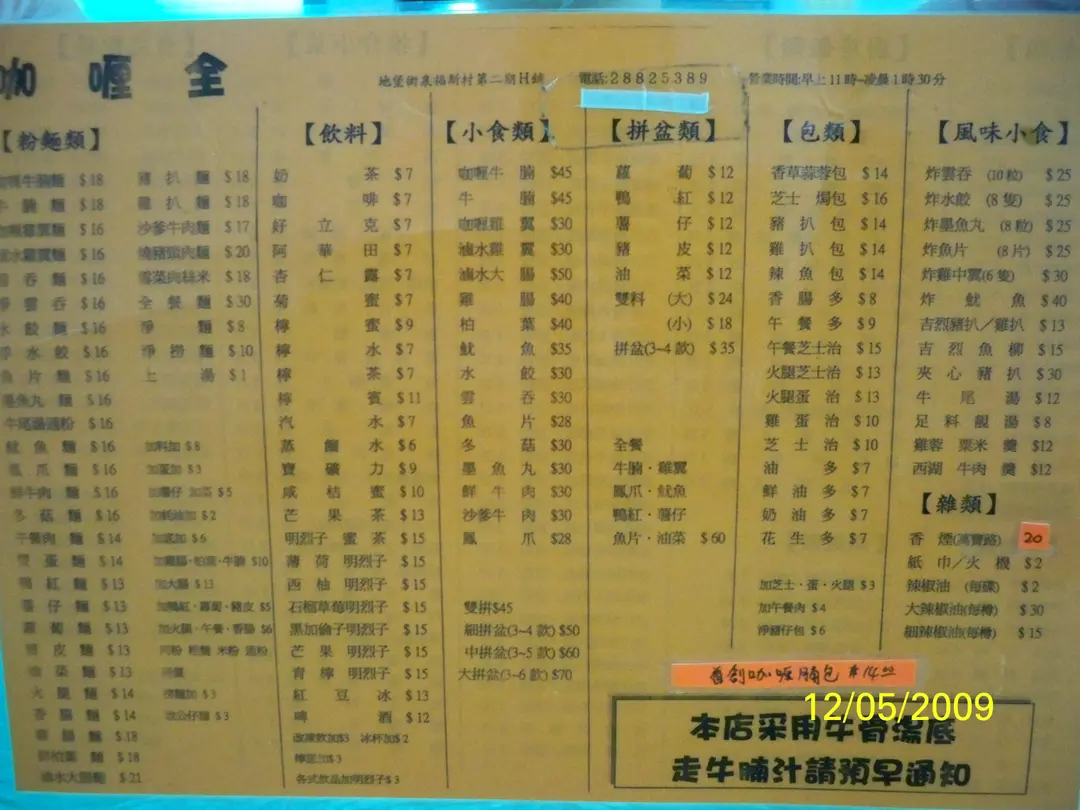 咖喱全
地堡街泉福新村第二期H舖 電話:28825389 營業時間:早上11時-凌晨1時30分
【粉麵類】
咖喱牛腩麵 $18
牛腩麵 $18
咖喱雞翼麵 $16
滷水雞翼麵 $16
雲吞麵 $16
淨雲吞 $16
水餃麵 $16
淨水餃 $16
魚片麵 $16
墨魚丸麵 $16
牛尾湯通粉 $16
魷魚麵 $16
鳳爪麵 $16
鮮牛肉麵 $16
冬菇麵 $16
午餐肉麵 $14
雙蛋麵 $14
鴨紅麵 $13
薯仔麵 $13
蘿蔔麵 $13
豬皮麵 $13
油菜麵 $13
火腿麵 $14
香腸麵 $14
雞腸麵 $18
鮮柏葉麵 $18
滷水大腸麵 $21
豬扒麵 $18
雞扒麵 $18
沙爹牛肉麵 $17
燒豬頸肉麵 $20
雪菜肉絲米 $18
全餐麵 $30
淨麵 $8
淨撈麵 $10
上湯 $1
加料加 $8
加蛋加 $3
加薯仔 加菜 $5
加蠔油加 $2
加底加 $6
加雞腸·柏葉·牛腩 $10
加大腸 $13
加鴨紅·蘿蔔·豬皮 $5
加火腿·午餐·香腸 $6
河粉 粗麵 米粉 通粉
撈麵加 $3
改公仔麵 $3
【飲料】
奶茶 $7
咖啡 $7
好立克 $7
阿華田 $7
杏仁露 $7
菊蜜 $7
檸蜜 $9
檸水 $7
檸茶 $7
檸賓 $11
汽水 $7
蒸餾水 $6
寶礦力 $9
咸桔蜜 $10
芒果茶 $13
明烈子蜜茶 $15
薄荷明烈子 $15
西柚明烈子 $15
石榴草莓明烈子 $15
黑加倫子明烈子 $15
芒果明烈子 $15
青檸明烈子 $15
紅豆冰 $13
啤酒 $12
改凍飲加$3 冰杯加$2
檸蜜加$3
各式飲品加明烈子$3
【小食類】
咖喱牛腩 $45
牛腩 $45
咖喱雞翼 $30
滷水雞翼 $30
滷水大腸 $50
雞腸 $40
柏葉 $40
魷魚 $35
水餃 $30
雲吞 $30
魚片 $28
冬菇 $30
墨魚丸 $30
鮮牛肉 $30
沙爹牛肉 $30
鳳爪 $28
雙拼$45
細拼盆(3~4款)$50
中拼盆(3~5款)$60
大拼盆(3~6款)$70
【拼盆類】
蘿蔔 $12
鴨紅 $12
薯仔 $12
豬皮 $12
油菜 $12
雙料 (大) $24
(小) $18
拼盆(3~4款) $35
全餐
牛腩·雞翼
鳳爪·魷魚
鴨紅·薯仔
魚片·油菜 $60
【包類】
香草蒜蓉包 $14
芝士焗包 $16
豬扒包 $14
雞扒包 $14
辣魚包 $14
香腸多 $8
午餐多 $9
午餐芝士治 $15
火腿芝士治 $13
火腿蛋治 $13
雞蛋治 $10
芝士治 $10
油多 $7
鮮油多 $7
奶油多 $7
花生多 $7
加芝士·蛋·火腿 $3
加午餐肉 $4
淨豬仔包 $6
【風味小食】
炸雲吞 (10粒) $25
炸水餃 (8隻) $25
炸墨魚丸 (8粒) $25
炸魚片 (8片) $25
炸雞中翼(6隻) $30
炸魷魚 $40
吉烈豬扒/雞扒 $13
吉烈魚柳 $15
夾心豬扒 $30
牛尾湯 $12
足料靚湯 $8
雞蓉粟米羹 $12
西湖牛肉羹 $12
【雜類】
香煙(萬寶路) 20
紙巾/火機 $2
辣椒油(每碟) $2
大辣椒油(每樽) $30
細辣椒油(每樽) $15
首創咖喱腩包 $14
本店采用牛骨湯底
走牛腩汁請預早通知
12/05/2009